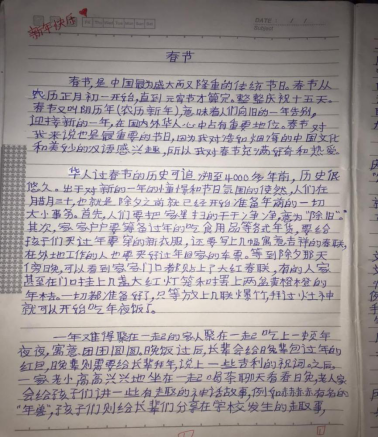 新年快乐
DATE
春节
春节,是中国最为盛大而又隆重的传统节日。春节从
农历正月初一开始,直到元宵才算完。整整庆祝十五天。
春节又叫阴历年(农历新年),意味着人们向旧的一年告别,
迎接新的一年,在国内外华人心中占有重要地位。春节对
我来说也是最重要的节日,因为我对浩如烟海的中国文化
和美妙的汉语感兴趣,所以我对春节充满好奇和热爱。
华人过春节的历史可追溯至4000多年前,历史很
悠久。出于对新的一年的憧憬和节日氛围的使然,人们在
腊月二十,也就是除夕之前就已经开始准备年前的一切
大小事务。首先,人们要把家里扫的干干净净,意为“除旧”。
其次,家家户户要筹备过年的吃食用品等各式年货,要给
孩子们买过年要穿的新衣服,还要写上几幅寓意吉祥的春联,
在外地工作的人也要买好过年回家的车票。等到除夕那天
傍晚,可以看到家家门口都贴上了大红春联,有的人家
甚至在门口挂上几盏大红灯笼
年味。一切都准备好了,只等放上几联爆竹,拜过火神
就可以开始吃年夜饭了。
一年又难得聚在一起的家人聚在一起吃上一顿年
夜饭,寓意团团圆圆。晚饭过后,长辈会给晚辈包过年的
红包,晚辈则需要给长辈拜年,说上一些吉利的祝词。之后,
一家老小高高兴兴地坐在一起喝茶聊天看春晚,老人家
会给孩子们讲一些有趣的神话故事,例如
“年兽”,孩子们则给长辈们分享在学校发生的趣事,